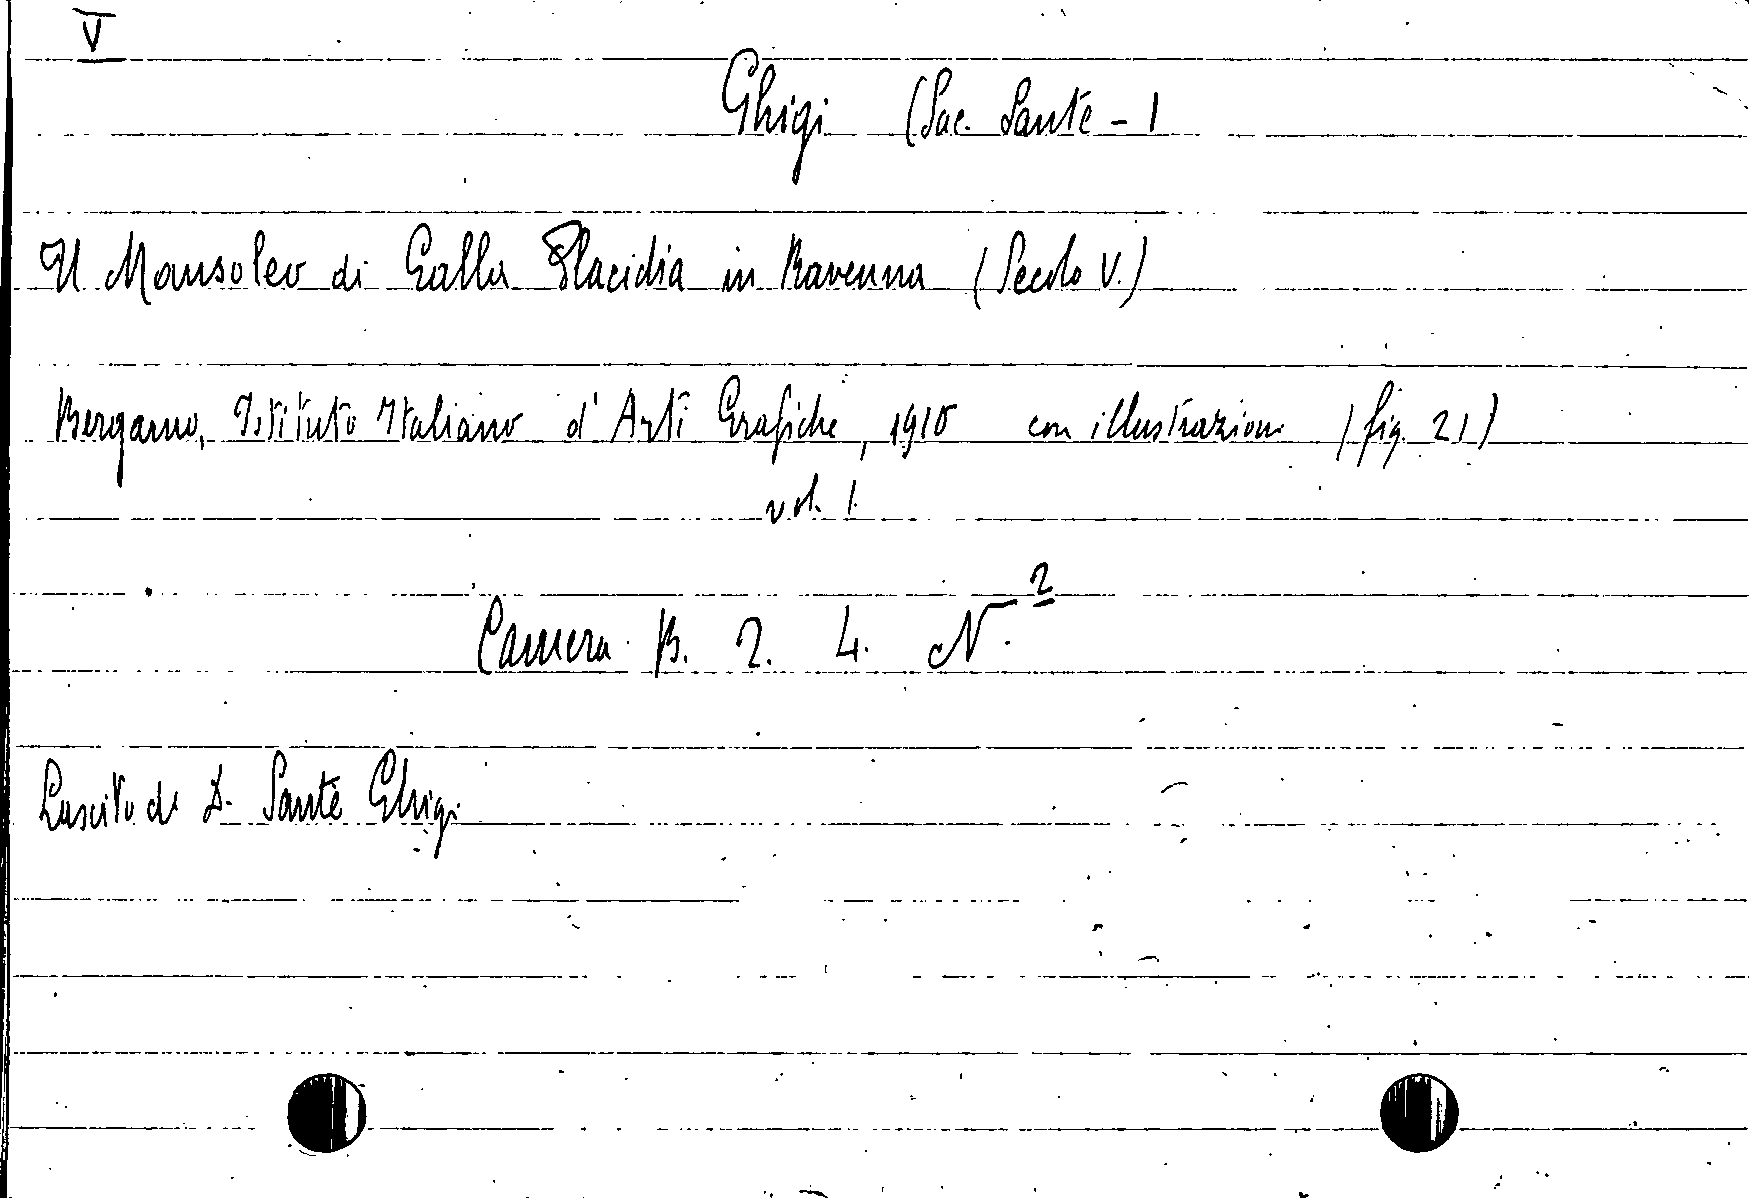 V
Ghigi (Sac. Sante - 1
Il Mausoleo di Galla Placidia in Ravenna (Secolo V.)
Bergamo, Istituto Italiano d' Arti Grafiche, 1910 con illustrazioni (fig. 21)
vol. 1.
Camera B. 2. 4. N. 2
Lascito di D. Sante Ghigi